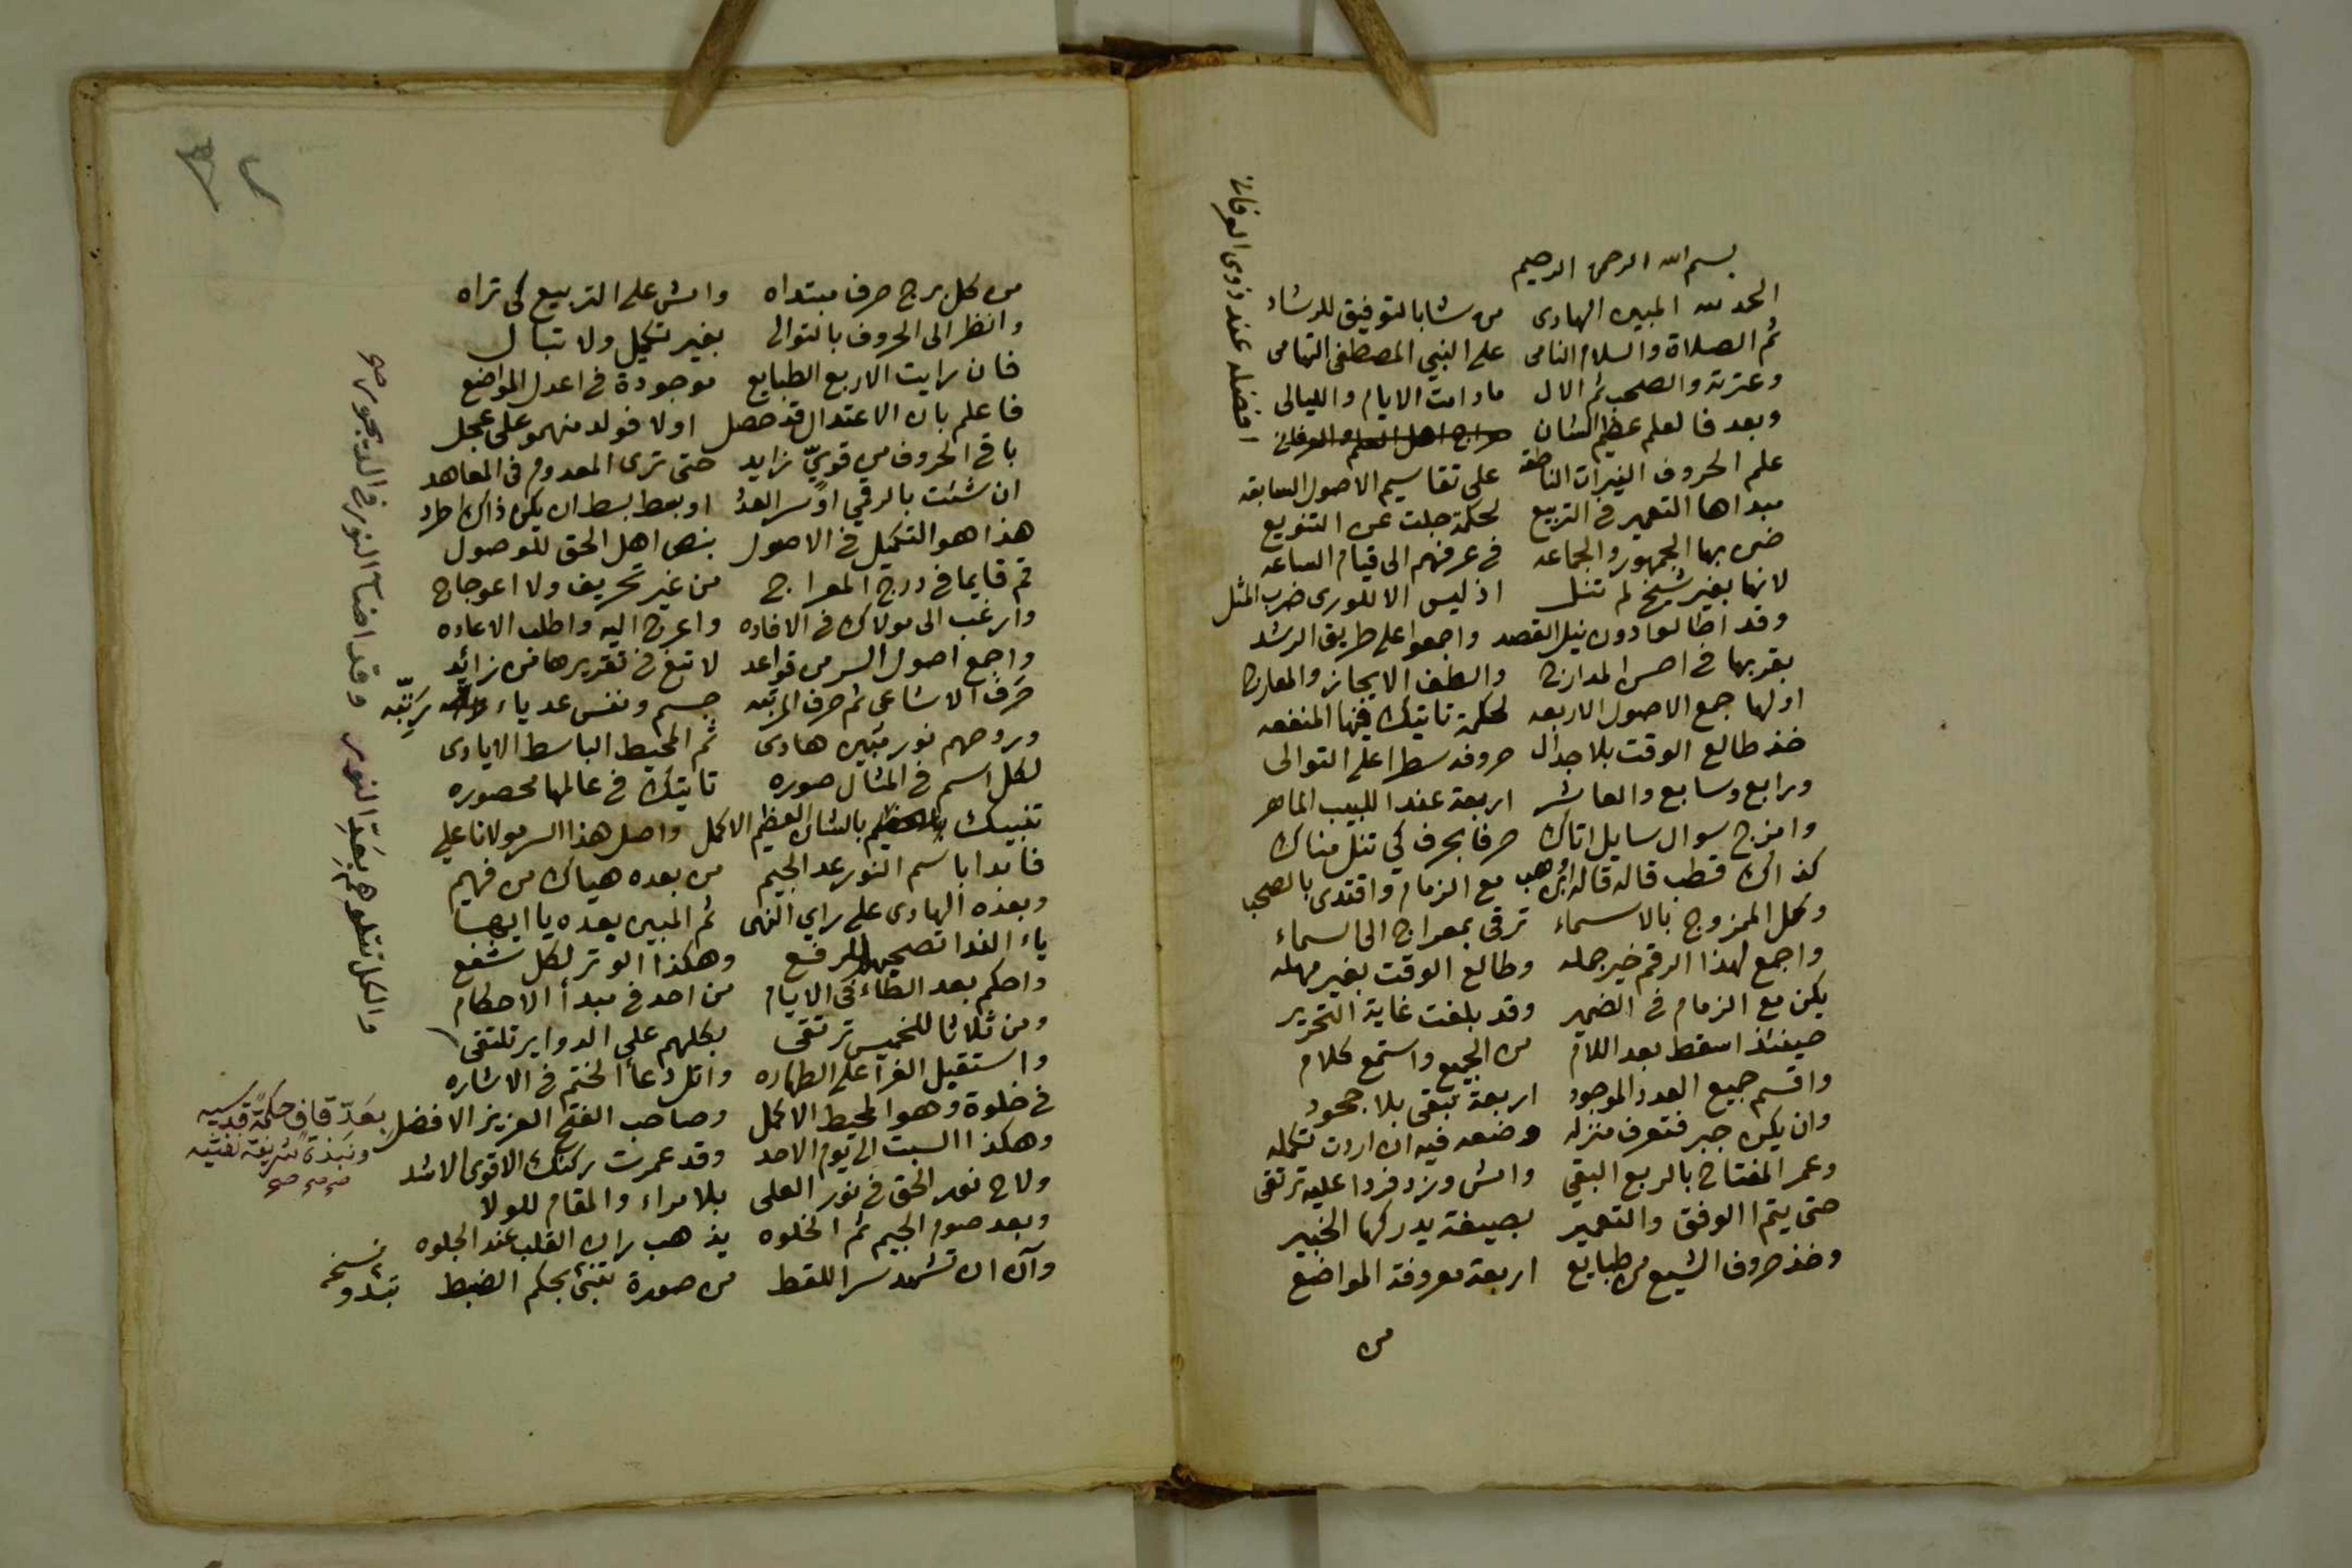 بسم الله الرحمن الرحيم
الحمد لله المبين الهادى من شا بالتوفيق للرشاد
ثم الصلاة والسلام النامى على النبي المصطفى التهامى
وعترته والصحب ثم الال ما دامت الايام والليالى
وبعد فالعلم عظيم الشان
افضله عند ذوى العرفان
علم الحروف النيرات الناطقه على تقاسيم الاصول السابقه
مبداها التعمير فى التربيع لحكمة جلت عن التنويع
ضن بها الجمهور والجماعه فى عرفهم الى قيام الساعه
لانها بغير شيخ لم تنل اذ ليس الا للورى ضرب المثل
وقد اطالوا دون نيل القصد واجمعوا على طريق الرشد
بقربها فى احسن المدارك والطف الايجاز والمعارك
اولها جمع الاصول الاربعه لحكمة تاتيك فيها المنفعه
خذ طالع الوقت بلا جدال حروفه سطرا على التوالى
ورابع وسابع والعاشر اربعة عند اللبيب الماهر
وامزج سوال سايل اتاك حرفا بحرف كي تنل مناك
كذاك قطب قاله ابن وهب مع الزمام واقتدى بالصحب
وكمل الممزوج بالاسماء ترقى بمعراج الى السماء
واجمع لهذا الرقم خير جمله وطالع الوقت بغير مهله
يكن مع الزمام فى الضمير وقد بلغت غاية التحرير
حينئذ اسقط بعد اللام من الجميع واستمع كلام
واقسم جميع العدد الموجود اربعة تبقى بلا جحود
وان يكن جبر فتعرف منزله وضعه فيه ان اردت تكمله
وعمر المفتاح بالربع البقي وامش وزد فردا عليه ترتقى
حتى يتم الوفق والتعمير بصيغة يدركها الخبير
وخذ حروف الشيع من طبايع اربعة معروفة المواضع
من
٢
من كل برج حرف مبتداه وامش على التربيع كى تراه
وانظر الى الحروف بالتوالى بغير تكميل ولا تبال
فان رايت الاربع الطبايع موجودة فى اعدل المواضع
فاعلم بان الاعتدال قد حصل اولا فولد منهمو على عجل
باقى الحروف من قويّ زايد حتى ترى المعدوم فى المعاهد
ان شئت بالرقي او سر العدد او بعط بسط ان يكن ذاك اطرد
هذا هو التكميل فى الاصول بنص اهل الحق للوصول
قم قايما فى درج المعراج من غير تحريف ولا اعوجاج
وارغب الى مولاك فى الافاده واعرج اليه واطلب الاعاده
واجمع اصول السر من قواعد لا تبغ فى تقريرها من زائد
حرف الاشاعى ثم حرف المرتبه جسم ونفس عد ياء رتبه
وروحهم نور مبين هادى ثم المحيط الباسط الايادى
لكل اسم فى المثال صوره تاتيك فى عالمها محصوره
تنبيك بالشان العظيم الاكمل واصل هذا السر مولانا علي
فابدا باسم النور عد الجيم من بعده هياك من فهيم
وبعده الهادى على راي النهى ثم المبين بعده يا ايها
ياء الندا تصحيها للرفع وهكذا الوتر لكل شفع
واحكم بعد الطاء فى الايام من احد فى مبدأ الاحكام
ومن ثلاثا للخميس ترتقى بكلهم على الدواير تلتقى
واستقبل الغرا على الطهاره واتل دعاء الختم فى الاشاره
فى خلوة وهو المحيط الاكمل وصاحب الفتح العزيز الافضل
وهكذا السبت الى يوم الاحد وقد عمرت ركنك الاقوى الاشد
ولاح نور الحق فى نور العلى بلا مراء والمقام للولا
وبعد صوم الجيم ثم الخلوه يذهب ران القلب عند الجلوه
وآن ان تشهد سر اللقط من صورة تنبئ بحكم الضبط
نسخه تبدو
والكل تتلوهم بعَدّ النور وقد اضآ النور فى الديجور صح
بعَدّ قاف حكمة قدسيه
ونبذة شريفة نفسيه
صح صح صح